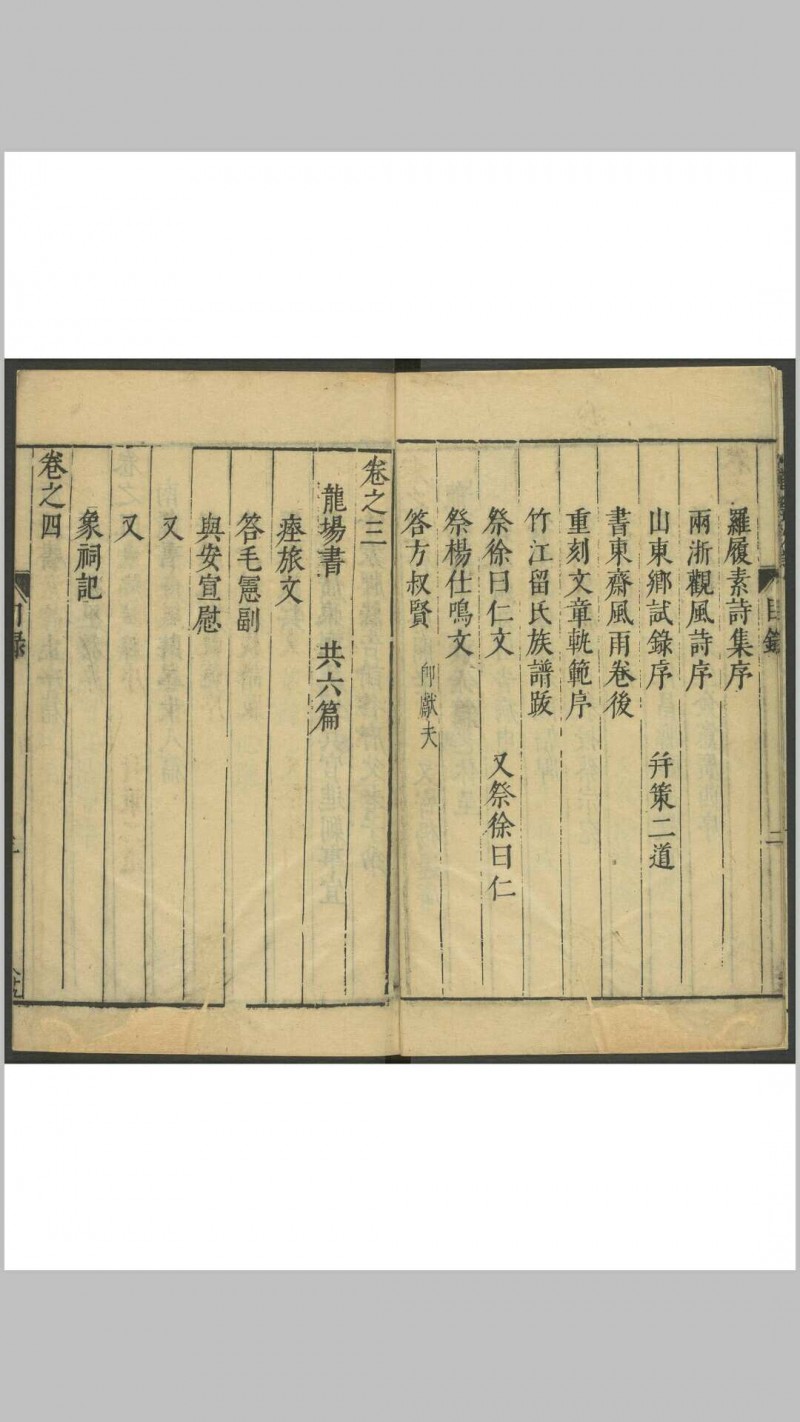 目錄
二
羅履素詩集序
兩浙觀風詩序
山東鄉試錄序 幷策二道
書東齋風雨卷後
重刻文章軌範序
竹江留氏族譜跋
祭徐曰仁文 又祭徐曰仁
祭楊仕鳴文
答方叔賢 卽獻夫
卷之三
龍場書 共六篇
瘞旅文
答毛憲副
與安宣慰
又
又
象祠記
卷之四
目錄